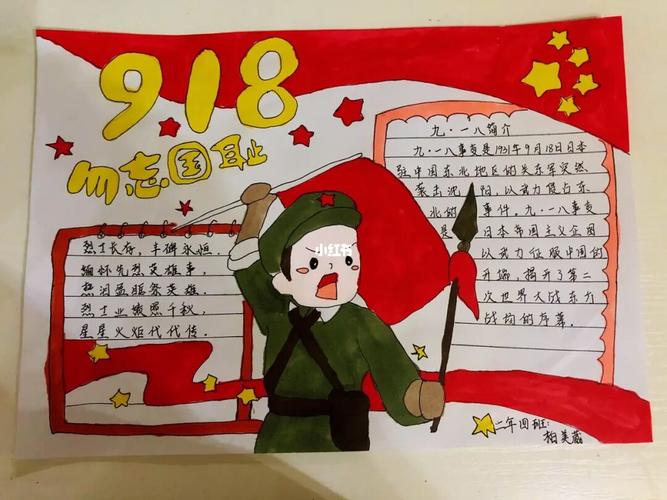 918
勿忘国耻
烈士长存，丰碑永恒.
缅怀先烈英雄事，
热泪盈眶祭英雄
烈士业绩照千秋，
星星火炬代代传.
小红书
九·一八简介
九·一八事变是1931年9月18日日本
驻中国东北地区的关东军突然
袭击沈阳，以武力侵占东
北的事件。九·一八事变
是日本帝国主义企图
以武力征服中国的
开端，揭开了第二
次世界大战东方
战场的序幕.
二年四班:
柏美